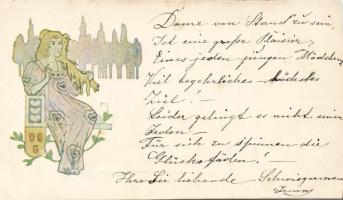 Dame von Stand zu sein,
Ist eine große Plaisir
Eines jeden jungen Mädchen
Viel begehrliches höchstes
Ziel! –
Leider gelingt es nicht einer
Jeden –
Für sich zu spinnen die
Glücksfäden! –
Ihre Sie liebende
Irma